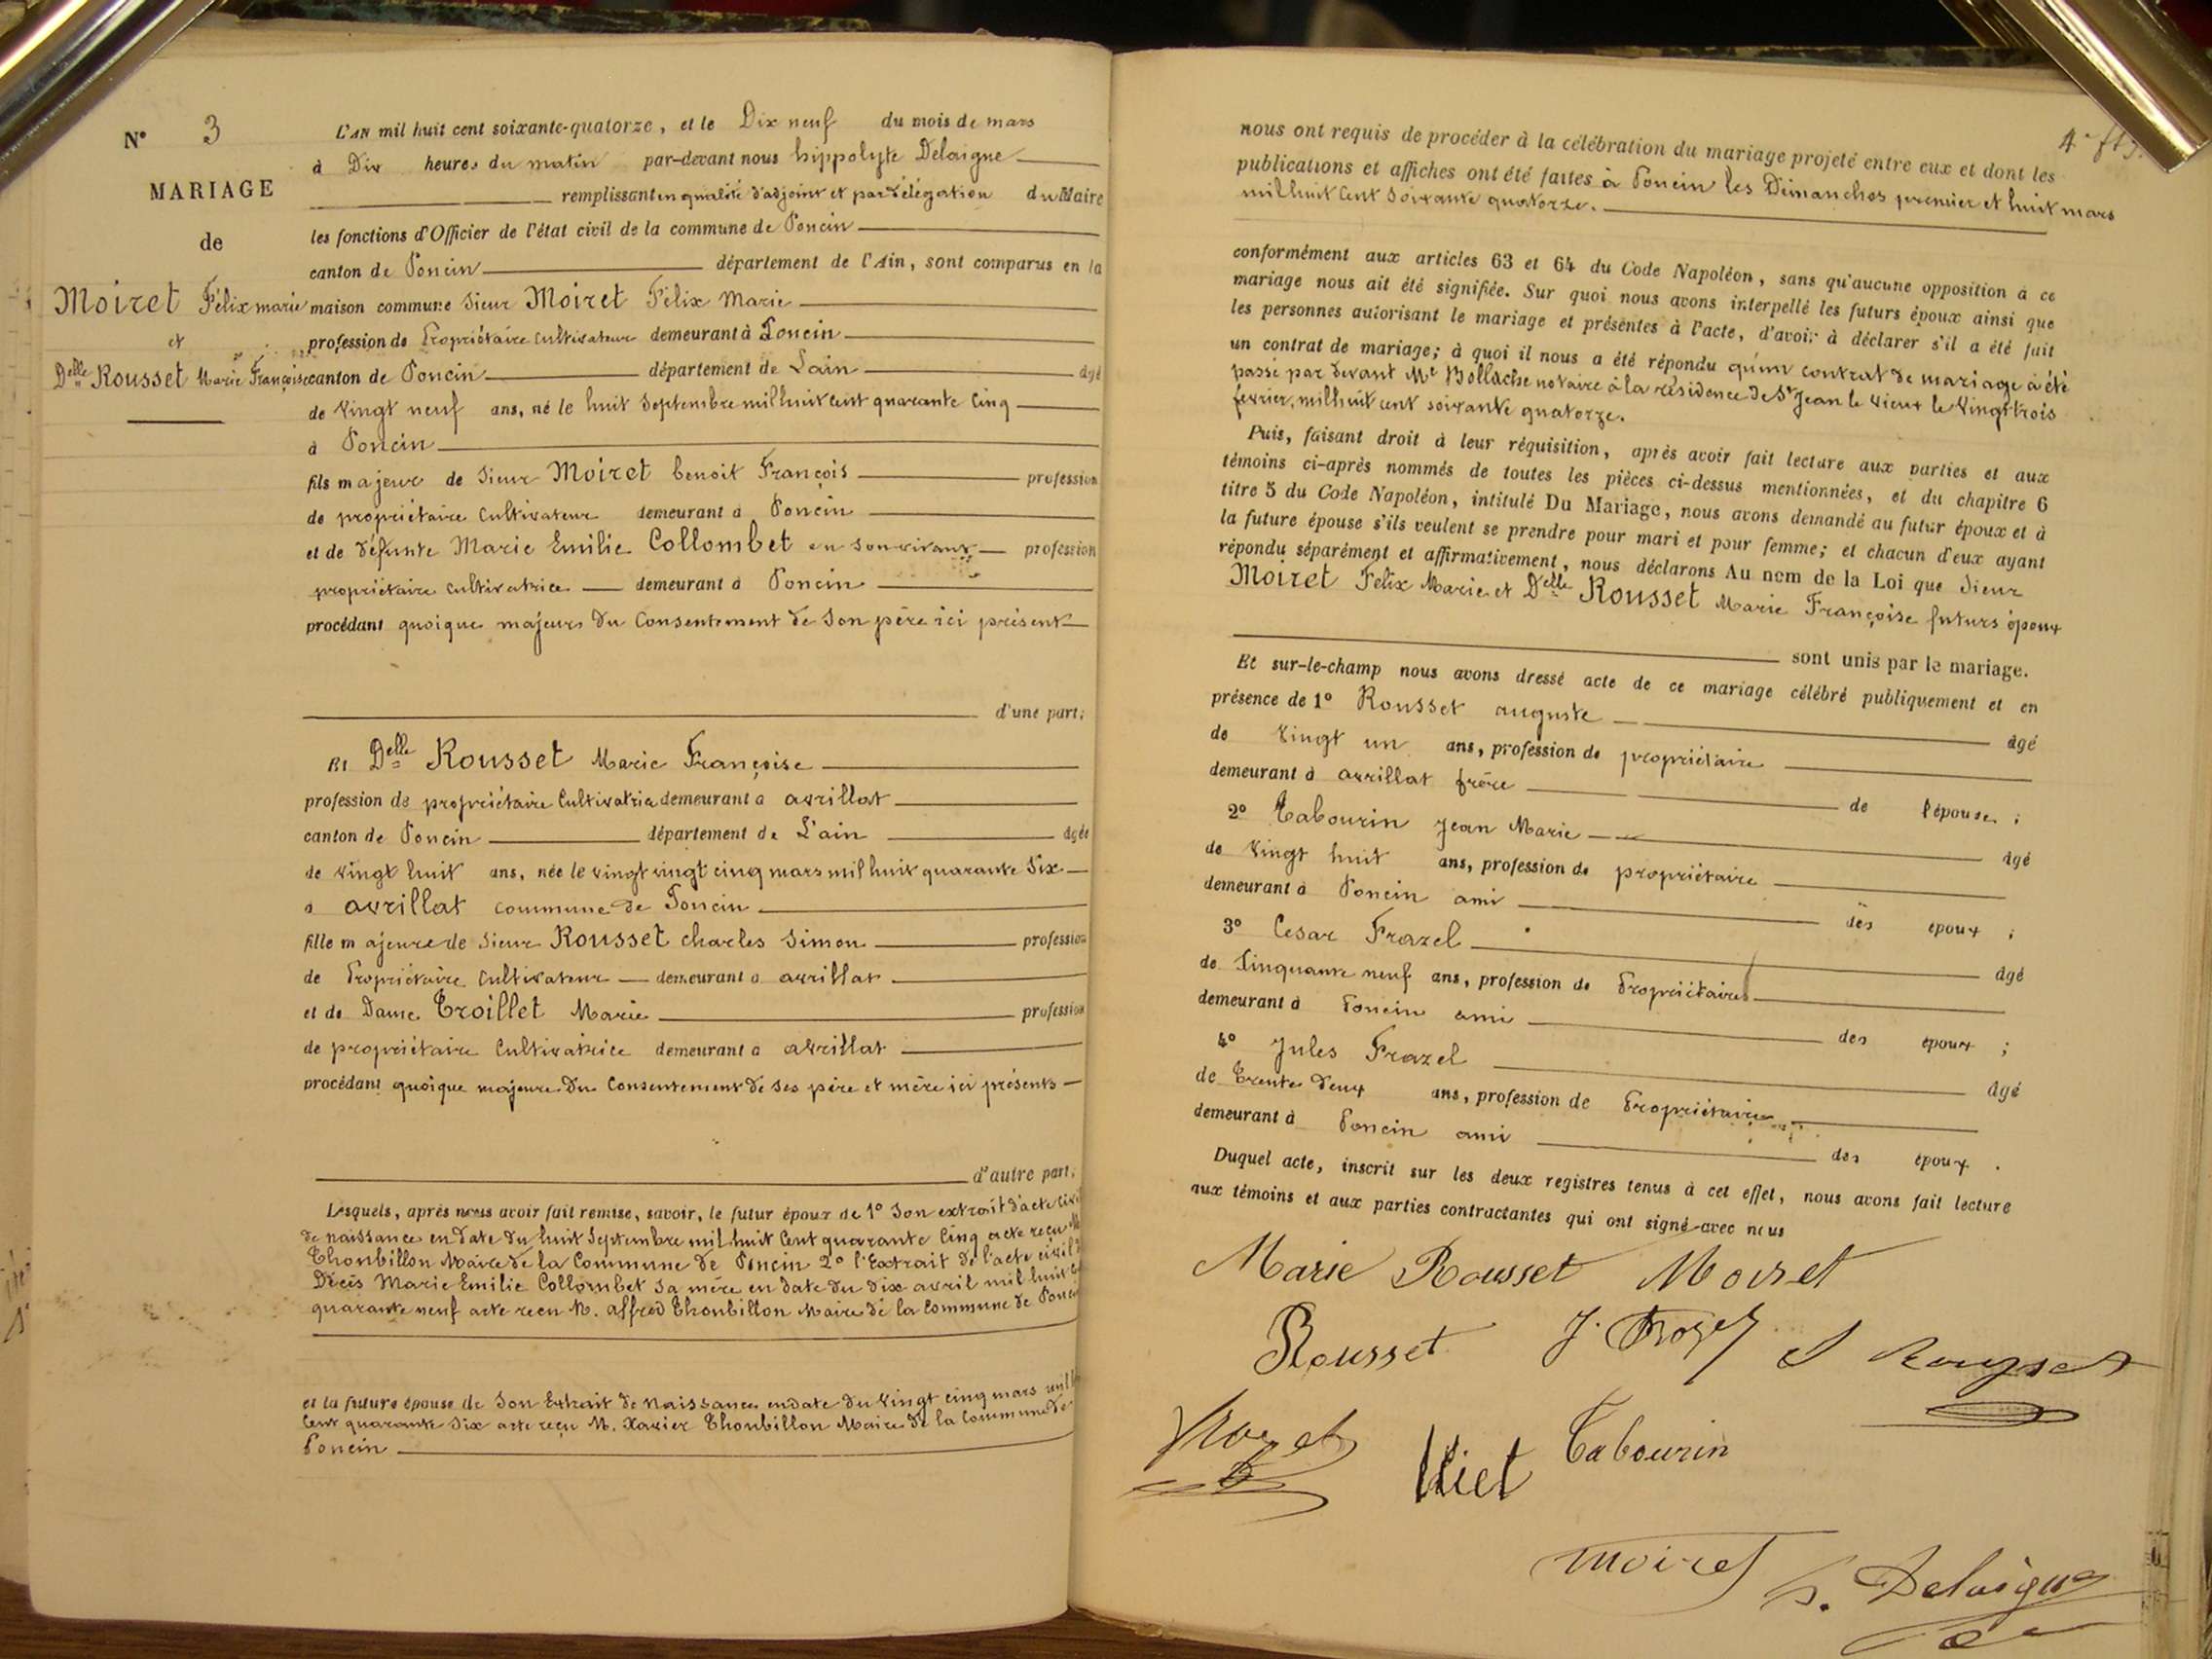 N° 3
MARIAGE
de
Moiret Félix marie
et
Delle Rousset Marie Françoise
L'AN mil huit cent soixante-quatorze, et le Dix neuf du mois de mars
à Dix heures du matin par-devant nous hippolyte Delaigne
remplissant en qualité d'adjoint et par délégation du Maire
les fonctions d'Officier de l'état civil de la commune de Poncin
canton de Poncin département de l'Ain, sont comparus en la
maison commune Sieur Moiret Félix Marie
profession de Propriétaire Cultivateur demeurant à Poncin
canton de Poncin département de L'ain âgé
de Vingt neuf ans, né le huit Septembre mil huit cent quarante Cinq
à Poncin
fils majeur de Sieur Moiret benoit François profession
de propriétaire Cultivateur demeurant à Poncin
et de défunte Marie Emilie Collombet en son vivant profession
propriétaire Cultivatrice demeurant à Poncin
procédant quoique majeur du Consentement de Son père ici présent
d'une part;
Et Delle Rousset Marie Françoise
profession de propriétaire Cultivatrice demeurant à avrillat
canton de Poncin département de L'ain âgée
de Vingt huit ans, née le vingt vingt cinq mars mil huit quarante Six
à avrillat commune de Poncin
fille majeure de Sieur Rousset charles Simon profession
de Propriétaire Cultivateur demeurant à avrillat
et de Dame Troillet Marie profession
de propriétaire Cultivatrice demeurant à avrillat
procédant quoique majeure du Consentement de Ses père et mère ici présents
d'autre part;
Lesquels, après nous avoir fait remise, savoir, le futur époux de 1° Son extrait d'acte civil
de naissance en date du huit Septembre mil huit Cent quarante Cinq acte reçu M
Thoubillon Maire de la Commune de Poncin 2° l'Extrait de l'acte civil
Décès Marie Emilie Collombet Sa mère en date du dix avril mil huit
quarante neuf acte reçu M. alfred Thoubillon Maire de la Commune de Poncin
et la future épouse de Son Extrait de Naissance en date du Vingt cinq mars mil
Cent quarante Six acte reçu M. Xavier Thoubillon Maire de la Commune de
Poncin
nous ont requis de procéder à la célébration du mariage projeté entre eux et dont les
publications et affiches ont été faites à Poncin les Dimanches premier et huit mars
mil huit Cent Soixante quatorze.
conformément aux articles 63 et 64 du Code Napoléon, sans qu'aucune opposition à ce
mariage nous ait été signifiée. Sur quoi nous avons interpellé les futurs époux ainsi que
les personnes autorisant le mariage et présentes à l'acte, d'avoir à déclarer s'il a été fait
un contrat de mariage; à quoi il nous a été répondu qu'un contrat de mariage a été
passé par devant Me Bollache notaire à la résidence de St Jean le Vieux le Vingt trois
février, mil huit cent soixante quatorze.
Puis, faisant droit à leur réquisition, après avoir fait lecture aux parties et aux
témoins ci-après nommés de toutes les pièces ci-dessus mentionnées, et du chapitre 6
titre 5 du Code Napoléon, intitulé Du Mariage, nous avons demandé au futur époux et à
la future épouse s'ils veulent se prendre pour mari et pour femme; et chacun d'eux ayant
répondu séparément et affirmativement, nous déclarons Au nom de la Loi que Sieur
Moiret Félix Marie et Delle Rousset Marie Françoise futurs époux
sont unis par le mariage.
Et sur-le-champ nous avons dressé acte de ce mariage célébré publiquement et en
présence de 1° Rousset auguste âgé
de Vingt un ans, profession de propriétaire
demeurant à avrillat frère de l'épouse;
2° Tabourin Jean Marie âgé
de Vingt huit ans, profession de propriétaire
demeurant à Poncin ami des époux;
3° Cesar Frazel âgé
de Cinquante neuf ans, profession de Propriétaire
demeurant à Poncin ami des époux;
4° Jules Frazel âgé
de Trente deux ans, profession de Propriétaire
demeurant à Poncin ami des époux.
Duquel acte, inscrit sur les deux registres tenus à cet effet, nous avons fait lecture
aux témoins et aux parties contractantes qui ont signé avec nous
Marie Rousset Moiret
Rousset
Tabourin
Moiret h. Delaigne